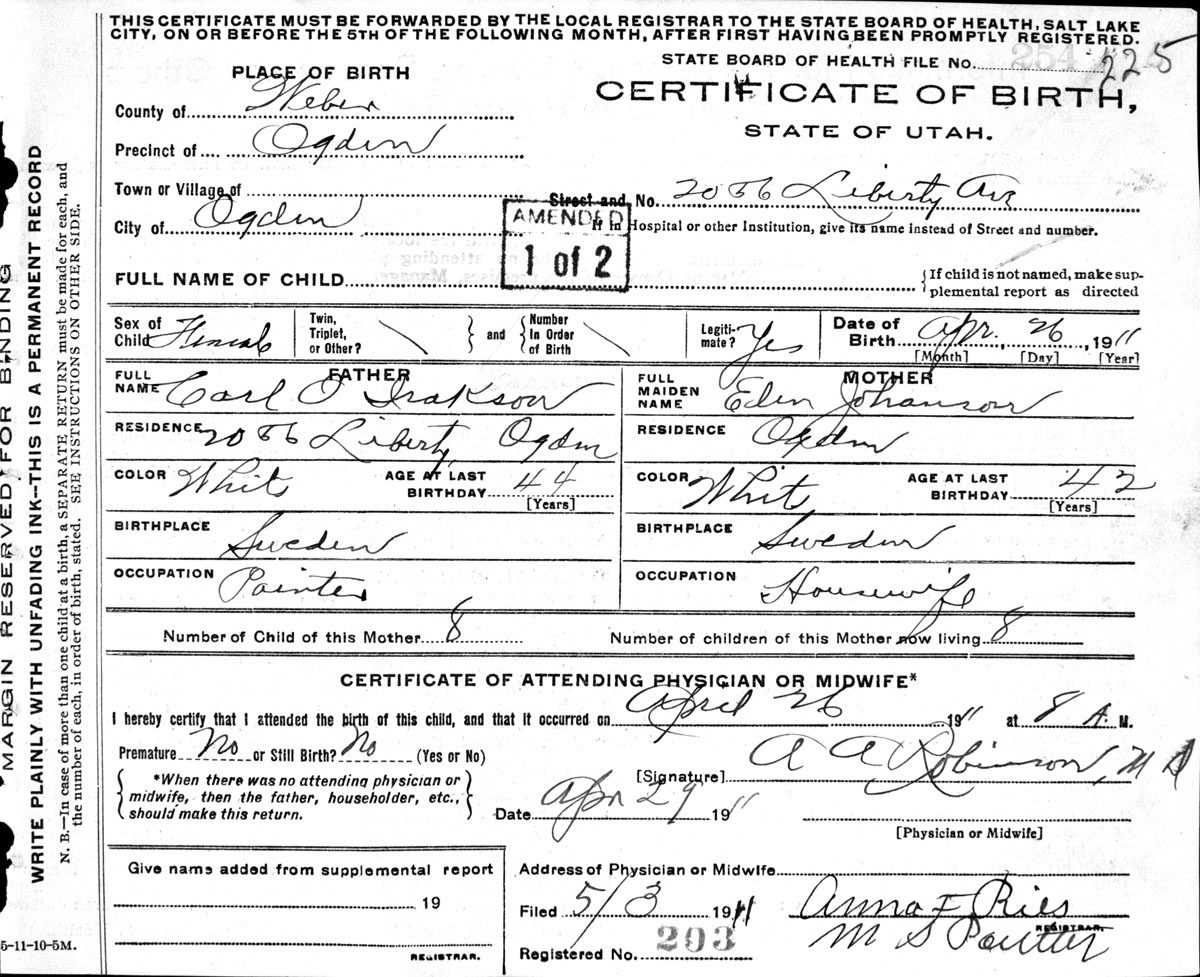 THIS CERTIFICATE MUST BE FORWARDED BY THE LOCAL REGISTRAR TO THE STATE BOARD OF HEALTH, SALT LAKE
CITY, ON OR BEFORE THE 5TH OF THE FOLLOWING MONTH, AFTER FIRST HAVING BEEN PROMPTLY REGISTERED.
STATE BOARD OF HEALTH FILE No. 225
PLACE OF BIRTH
CERTIFICATE OF BIRTH,
STATE OF UTAH.
County of Weber
Precinct of Ogden
Town or Village of
Street and No. 2056 Liberty Ave
City of Ogden
If in Hospital or other Institution, give its name instead of Street and number.
AMENDED
1 of 2
FULL NAME OF CHILD
{If child is not named, make sup-
plemental report as directed
Sex of Child Female
Twin, Triplet, or Other? } and { Number In Order of Birth
Legiti-mate? Yes
Date of Birth Apr. 26, 1911
[Month] [Day] [Year]
FATHER
FULL NAME Carl O
RESIDENCE 2056 Liberty Ogden
COLOR White AGE AT LAST BIRTHDAY 44
[Years]
BIRTHPLACE Sweden
OCCUPATION Painter
MOTHER
FULL MAIDEN NAME Johanson
RESIDENCE Ogden
COLOR White AGE AT LAST BIRTHDAY 42
[Years]
BIRTHPLACE Sweden
OCCUPATION Housewife
Number of Child of this Mother 8 Number of children of this Mother now living 8
CERTIFICATE OF ATTENDING PHYSICIAN OR MIDWIFE*
I hereby certify that I attended the birth of this child, and that it occurred on April 26 1911 at 8 A. M.
Premature No or Still Birth? No (Yes or No)
{*When there was no attending physician or
midwife, then the father, householder, etc.,
should make this return.}
[Signature] A A Robinson, M D
Date Apr 29 1911
[Physician or Midwife]
Give name added from supplemental report
19
REGISTRAR.
Address of Physician or Midwife
Filed 5/3 1911 Anna F Ries
M S
REGISTRAR.
Registered No. 293
5-11-10-5M.
MARGIN RESERVED FOR BINDING
WRITE PLAINLY WITH UNFADING INK--THIS IS A PERMANENT RECORD
N. B.—In case of more than one child at a birth, a SEPARATE RETURN must be made for each, and
the number of each, in order of birth, stated. SEE INSTRUCTIONS ON OTHER SIDE.